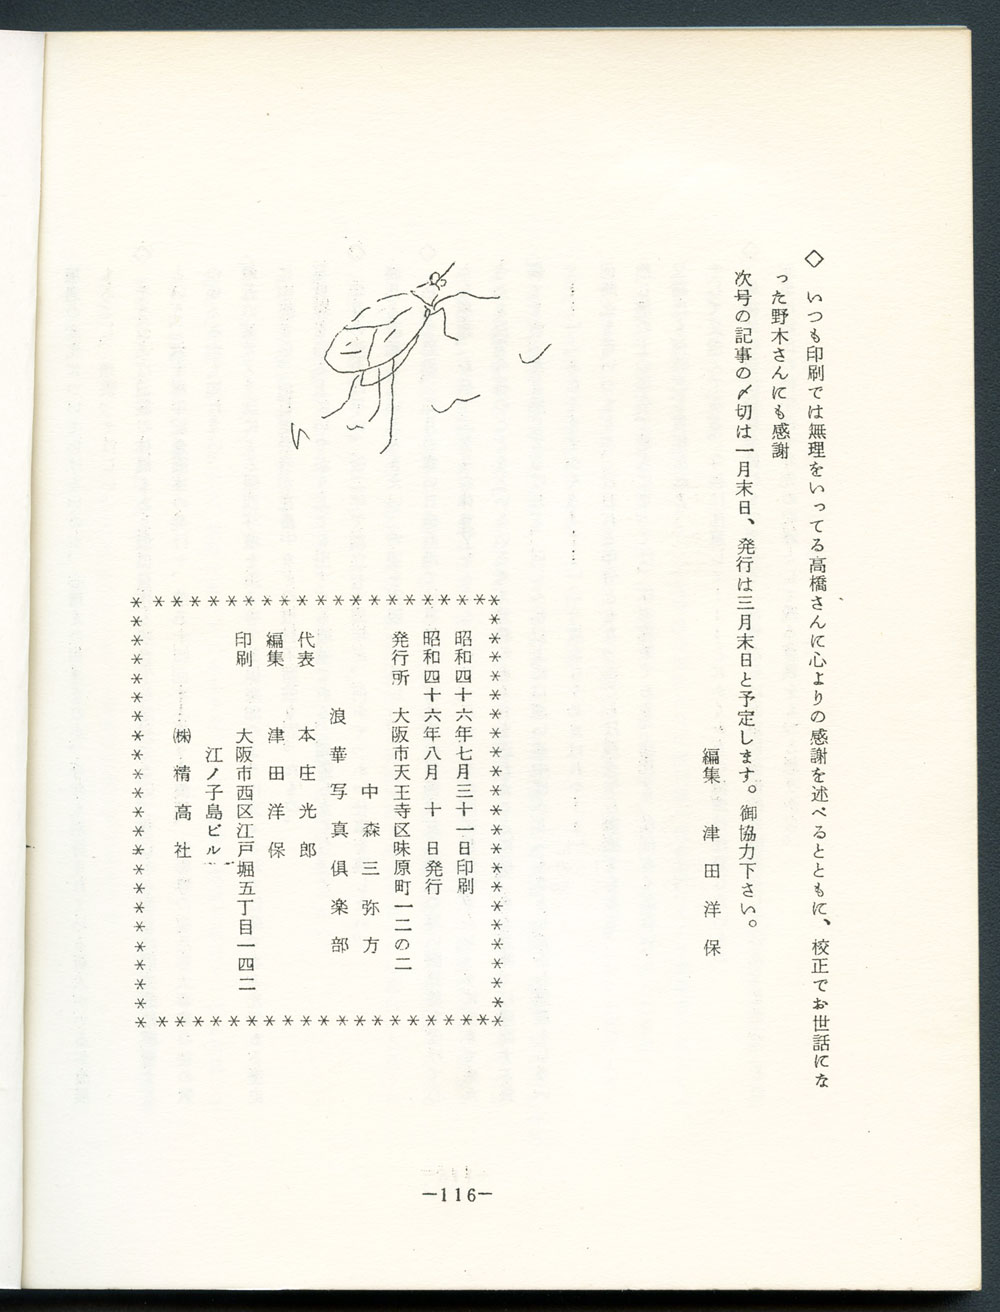 ◇ いつも印刷では無理をいってる高橋さんに心よりの感謝を述べるとともに、校正でお世話にな
った野木さんにも感謝
次号の記事の〆切は一月末日、発行は三月末日と予定します。御協力下さい。
編集 津田洋保
昭和四十六年七月三十一日印刷
昭和四十六年八月 十 日発行
発行所 大阪市天王寺区味原町一二の二
中森三弥方
浪華写真倶楽部
代表 本庄光郎
編集 津田洋保
印刷 大阪市西区江戸堀五丁目一四二
江ノ子島ビル
㈱ 精高社
—116—